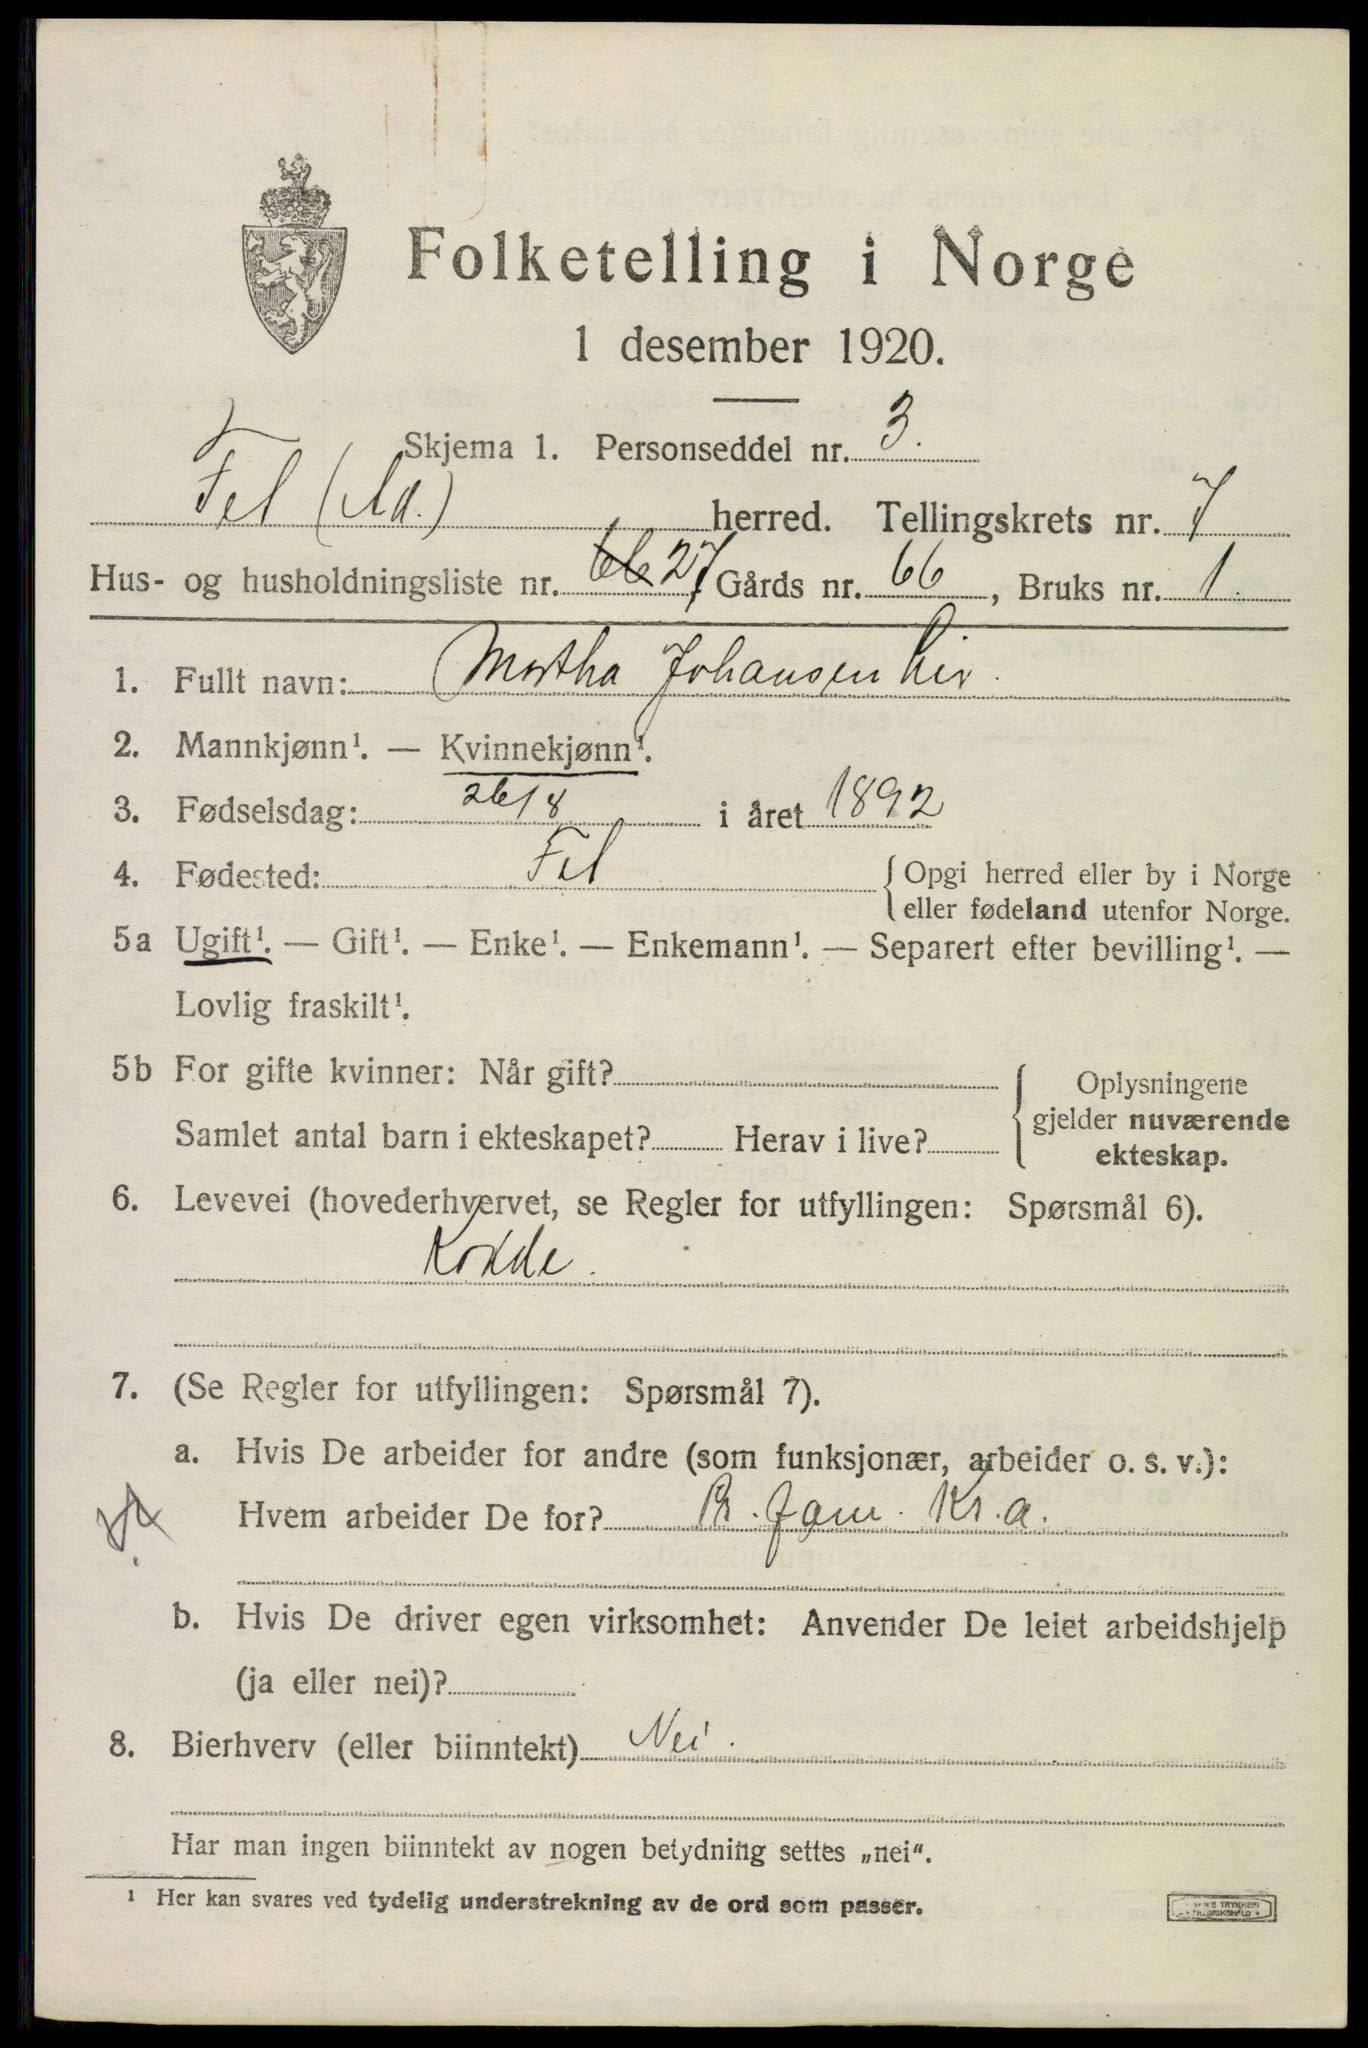 Folketelling i Norge
1 desember 1920.
Skjema 1. Personseddel nr. 3.
Fet (Ad.) herred. Tellingskrets nr. 7
Hus- og husholdningsliste nr. 66 27, Gårds nr. 66, Bruks nr. 1.
1. Fullt navn: Martha Johansen Lier.
2. Mannkjønn¹. — Kvinnekjønn¹.
3. Fødselsdag: 26/8 i året 1892
4. Fødested: Fet {Opgi herred eller by i Norge
eller fødeland utenfor Norge.
5a Ugift¹. — Gift¹. — Enke¹. — Enkemann¹. — Separert efter bevilling¹. —
Lovlig fraskilt¹.
5b For gifte kvinner: Når gift? {Oplysningene
gjelder nuværende
Samlet antal barn i ekteskapet? Herav i live?
ekteskap.
6. Levevei (hovederhvervet, se Regler for utfyllingen: Spørsmål 6).
Kokke.
7. (Se Regler for utfyllingen: Spørsmål 7).
a. Hvis De arbeider for andre (som funksjonær, arbeider o. s. v.):
Hvem arbeider De for? Pr. fam. Kr.a.
b. Hvis De driver egen virksomhet: Anvender De leiet arbeidshjelp
(ja eller nei)?
8. Bierhverv (eller biinntekt) Nei.
Har man ingen biinntekt av nogen betydning settes „nei“.
¹ Her kan svares ved tydelig understrekning av de ord som passer.